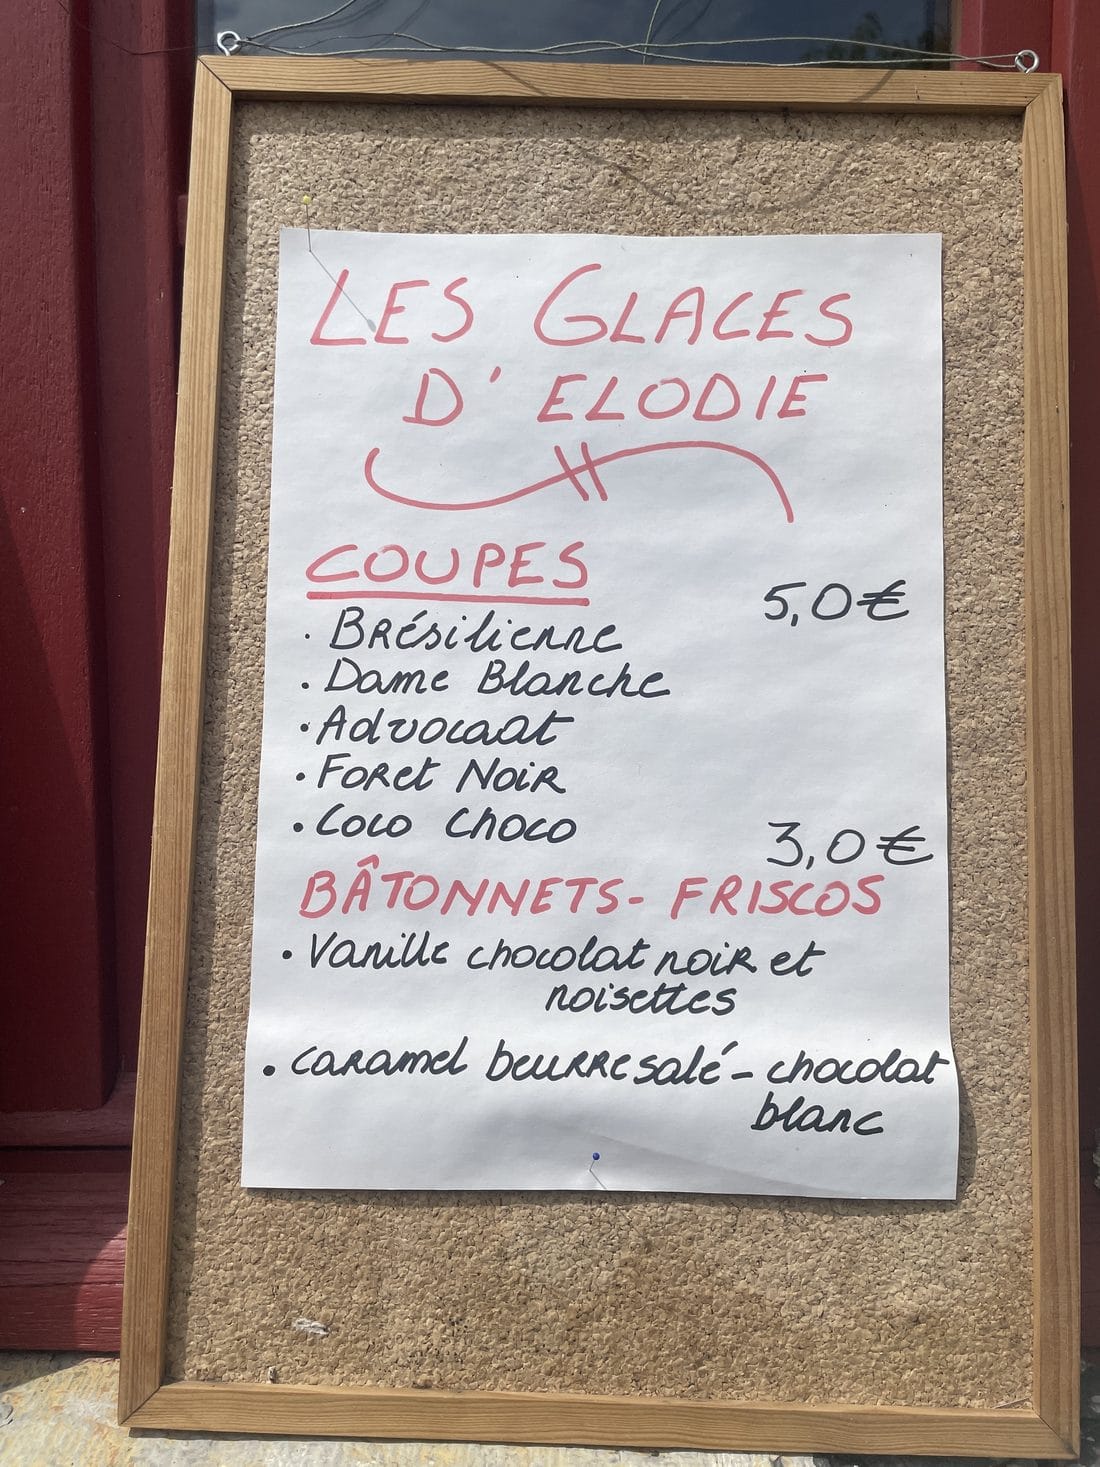 LES GLACES
D'ELODIE
COUPES
5,0€
· Brésilienne
· Dame Blanche
· Advocaat
· Foret Noir
· Coco Choco
3,0€
BÂTONNETS - FRISCOS
· Vanille chocolat noir et
noisettes
· caramel beurre salé - chocolat
blanc